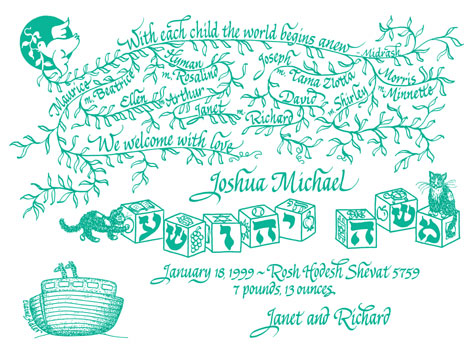 With each child the world begins anew
- Midrash
Maurice
m. Beatrice
Hyman
m. Rosalind
Joseph
m. Tama Zlotta
Morris
m. Minnette
Ellen
Arthur
David
m. Shirley
Janet
Richard
We welcome with love
Joshua Michael
משה יהושע
January 18 1999 ~ Rosh Hodesh Shevat 5759
7 pounds, 13 ounces
Janet and Richard